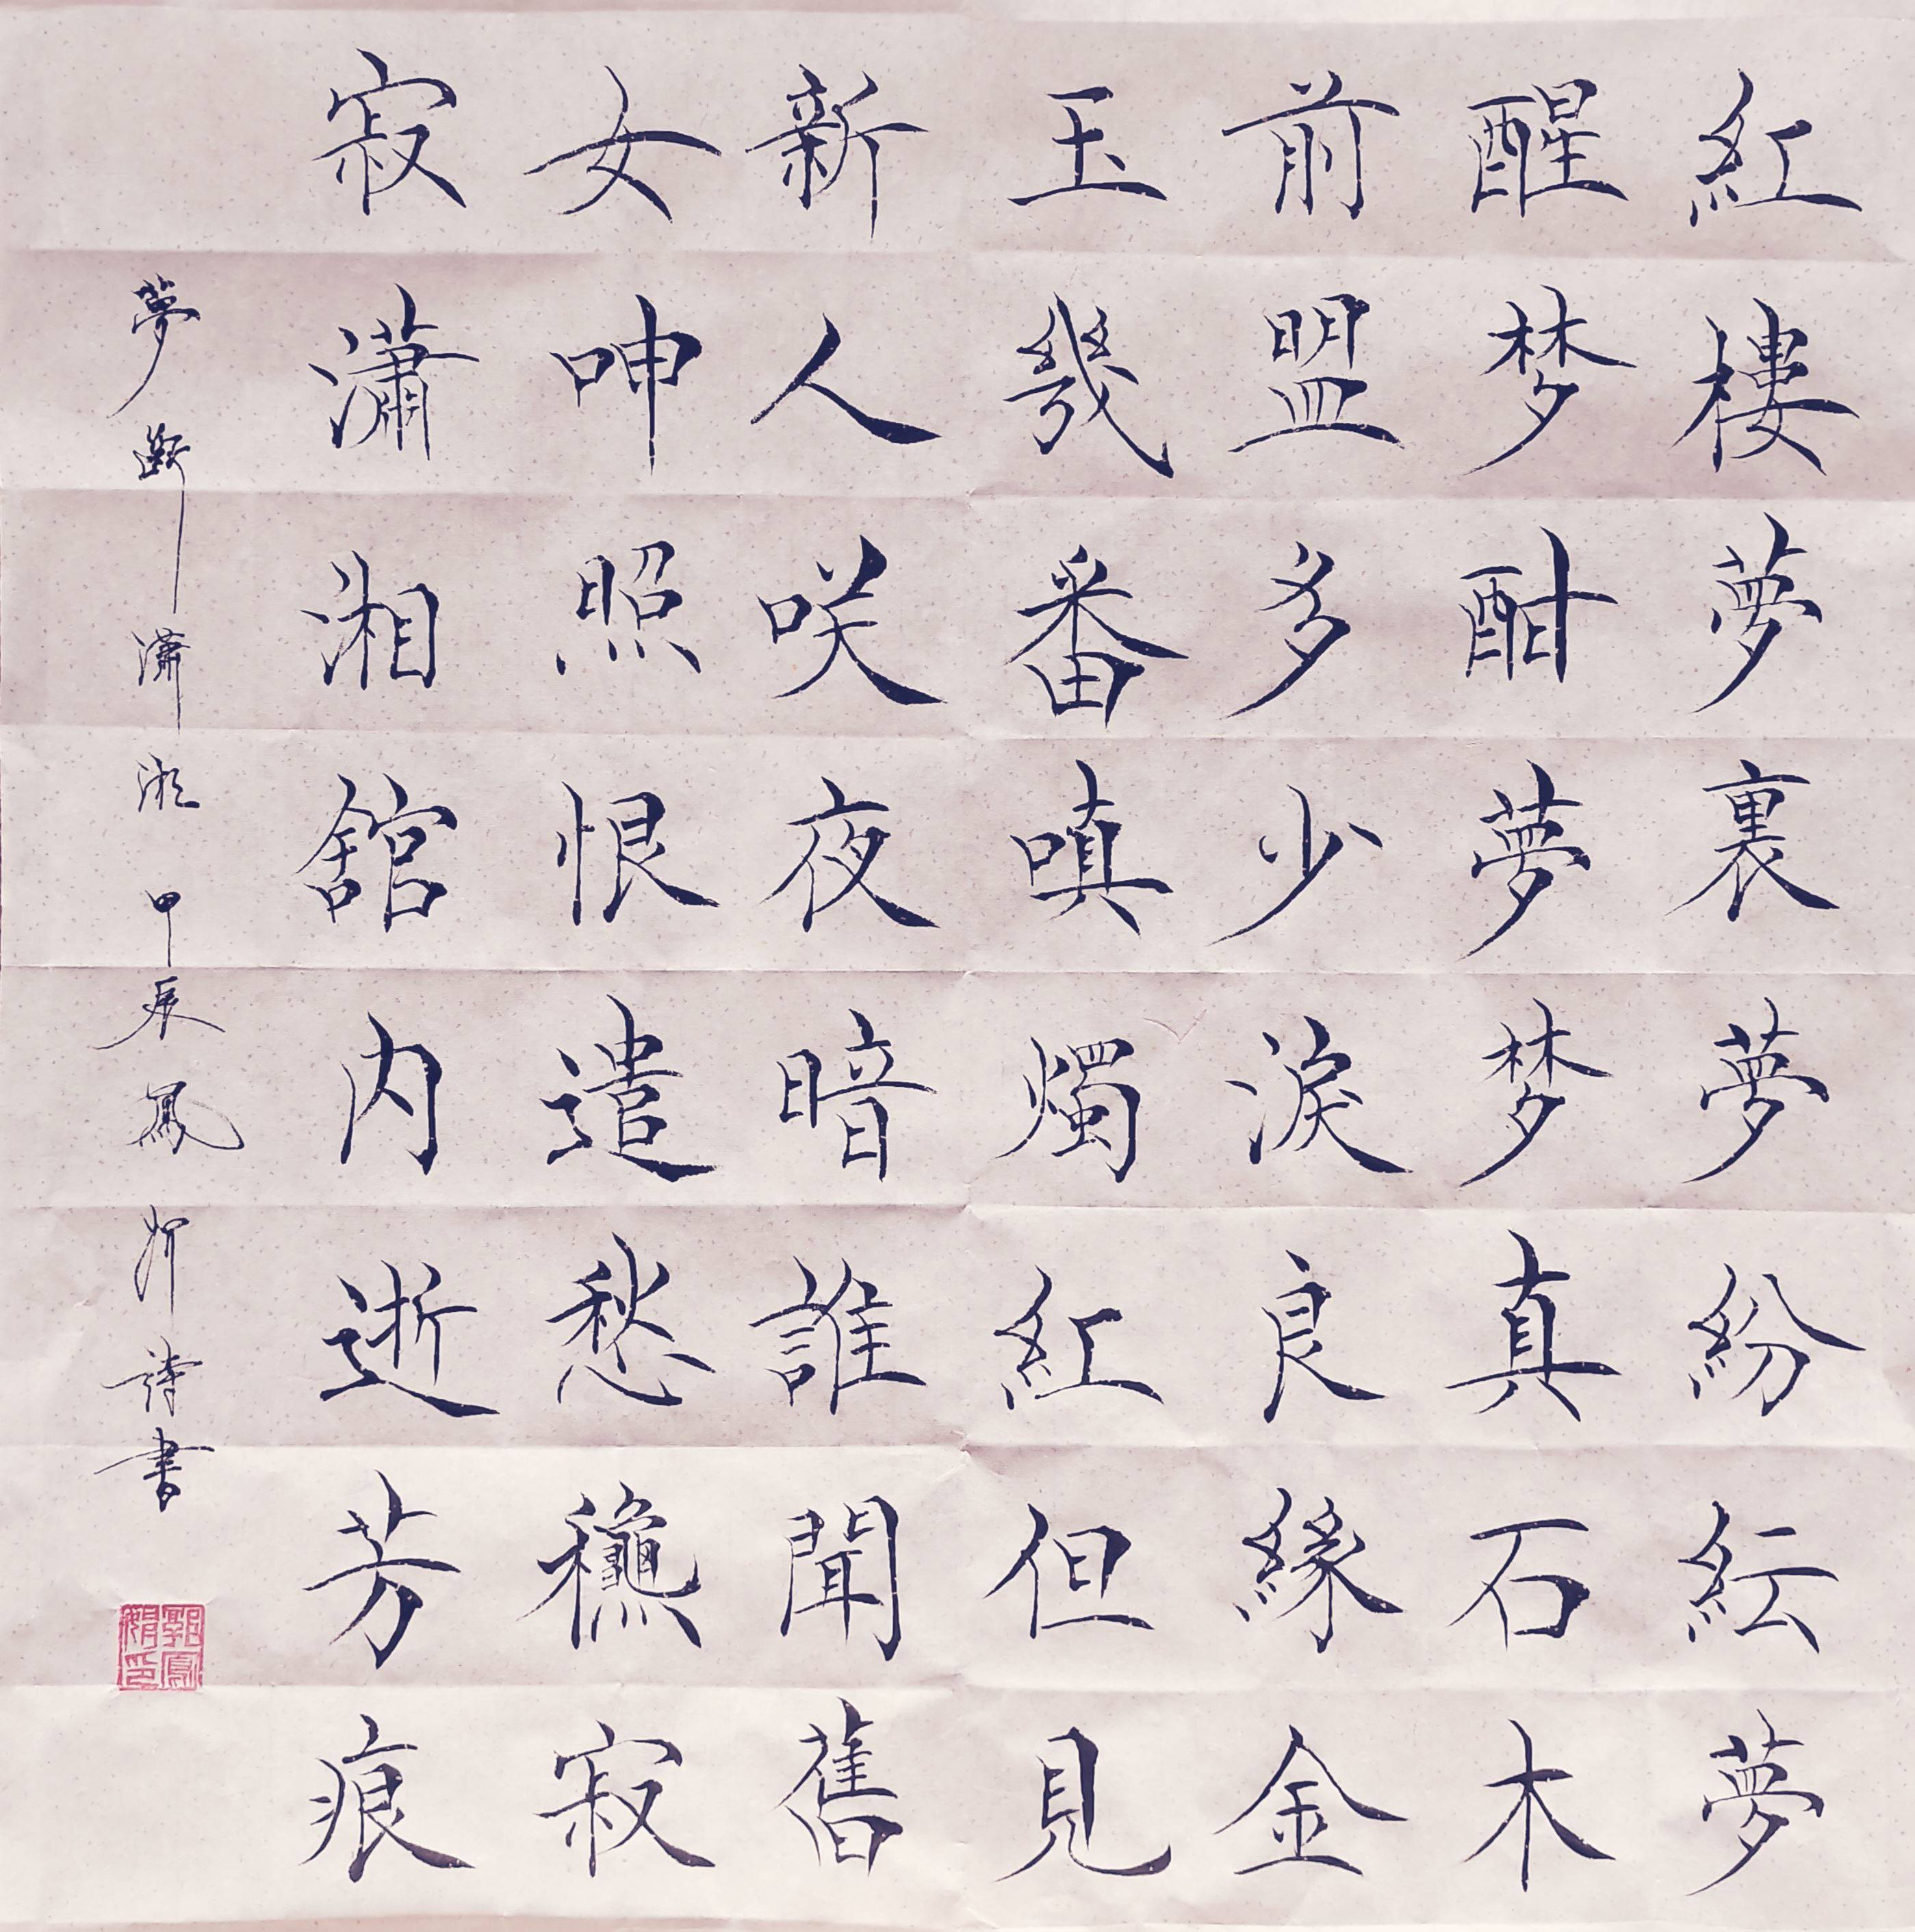 紅樓夢裏夢紛紜夢
醒梦酣夢梦真石木
前盟多少淚良緣金
玉幾番嗔燭紅但見
新人咲夜暗誰聞舊
女呻照恨遣愁龝寂
寂瀟湘舘内逝芳痕
夢斷瀟湘 甲辰鳳妍詩書
郭鳳娟印